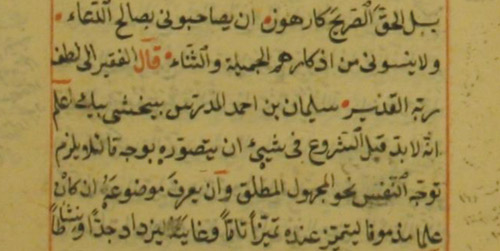 بل الحق الصريح كارهون ان يصاحبونى بصالح الدعاء
ولا ينسونى من اذكارهم الجميلة والثناء قال الفقير الى لطف
ربه القدير سليمان بن احمد المدرس اعلم
انه لابد قبل الشروع فى شيئ ان يتصوره بوجه ما لئلا يلزم
توجه النفس نحو المجهول المطلق وان يعرف موضوعه ان كان
علما ليتميز عنده تميزا تاما وغايته ليزداد جدا ونشاطا